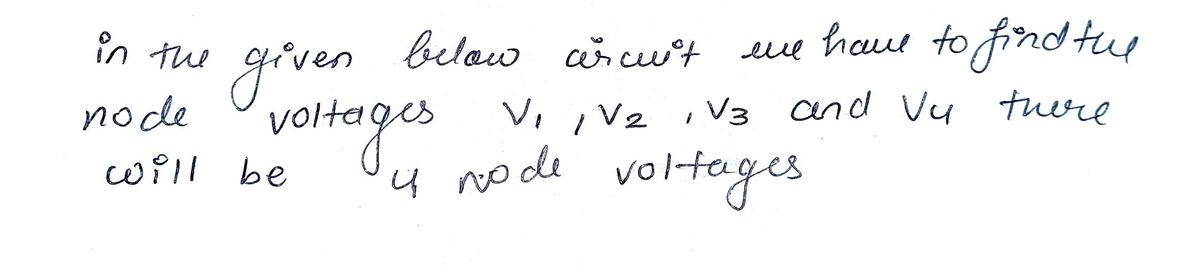 in the given below circuit we have to find the
node voltages V1 , V2 , V3 and V4 there
will be 4 node voltages